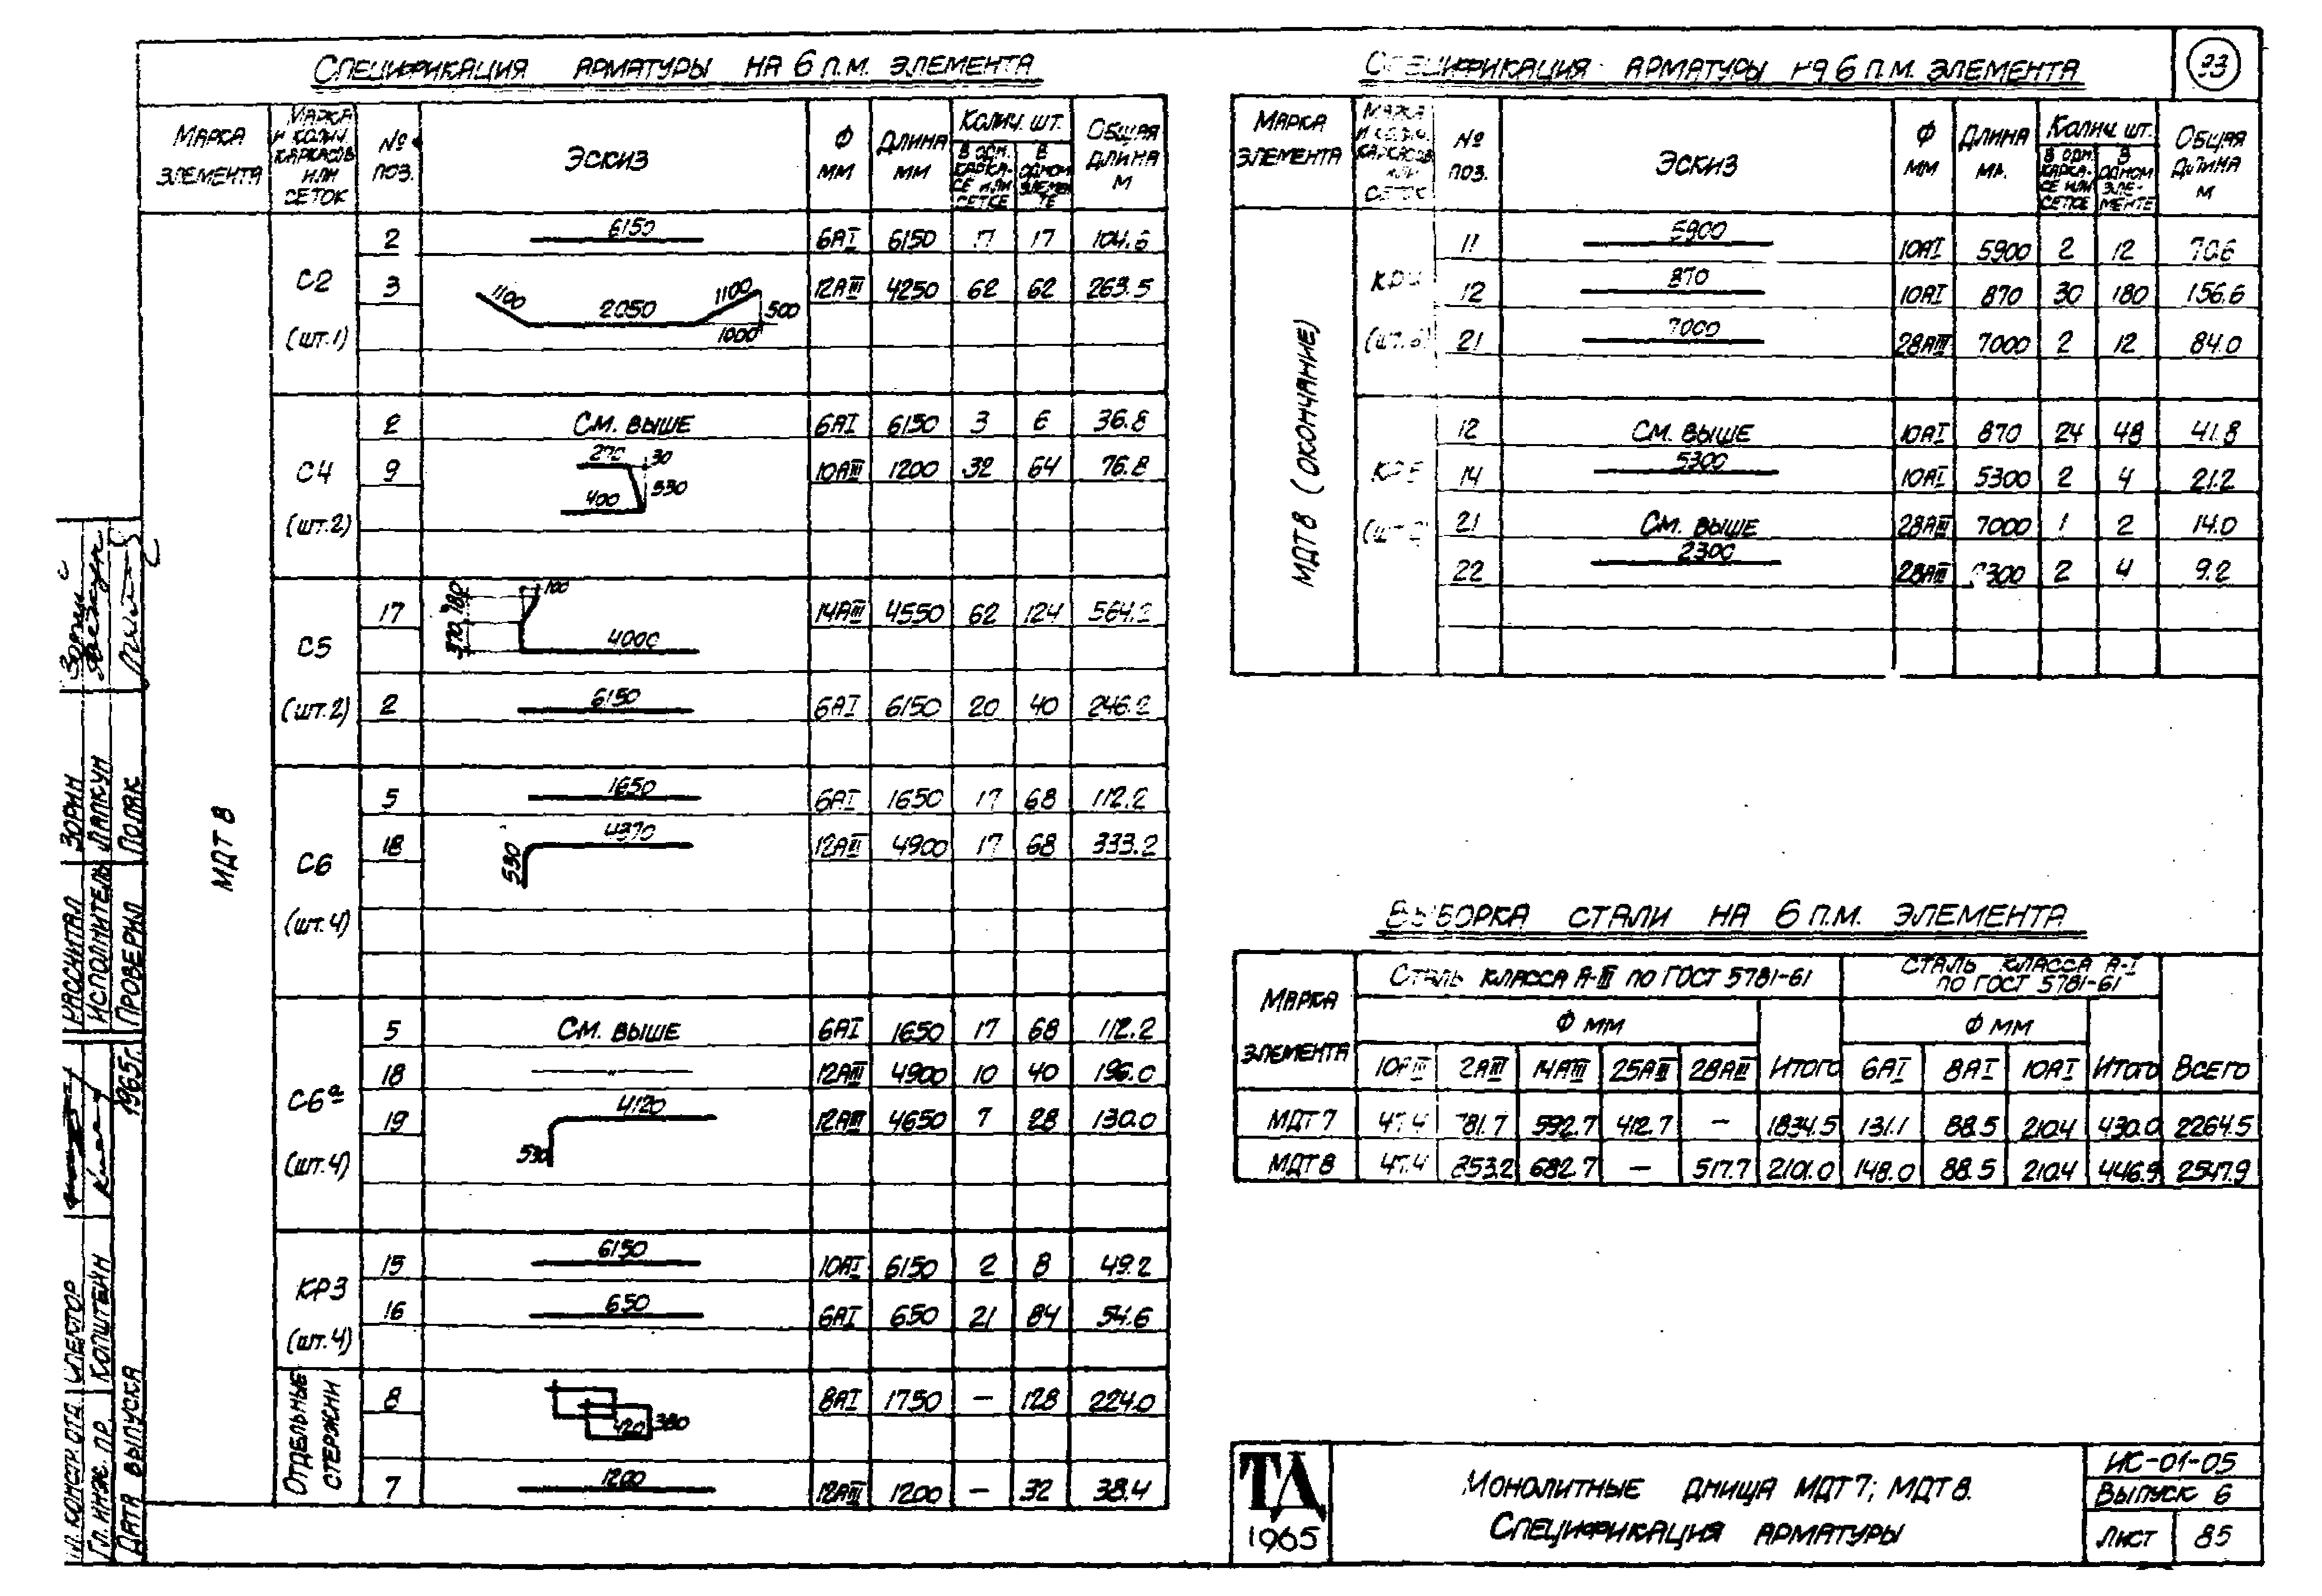 Спецификация арматуры на 6 п.м. элемента
Марка элемента | Марка и колич. каркасов или сеток | №№ поз. | Эскиз | Ф мм | Длина мм | Колич. шт. | Общая длина м
в одн. каркасе или сетке | в одном элементе
МДТ 8
С2 (шт.1)
2 | 6150 | 6АI | 6150 | 17 | 17 | 104.6
3 | 1100 2050 1100 500 1000 | 12АIII | 4250 | 62 | 62 | 263.5
С4 (шт.2)
2 | См. выше | 6АI | 6150 | 3 | 6 | 36.8
9 | 270 30 530 400 | 10АIII | 1200 | 32 | 64 | 76.8
С5 (шт.2)
17 | 100 180 370 4000 | 14АIII | 4550 | 62 | 124 | 564.2
2 | 6150 | 6АI | 6150 | 20 | 40 | 246.2
С6 (шт.4)
5 | 1650 | 6АI | 1650 | 17 | 68 | 112.2
18 | 4370 530 | 12АIII | 4900 | 17 | 68 | 333.2
С6а (шт.4)
5 | См. выше | 6АI | 1650 | 17 | 68 | 112.2
18 | —"— | 12АIII | 4900 | 10 | 40 | 196.0
19 | 4120 530 | 12АIII | 4650 | 7 | 28 | 130.0
КР3 (шт.4)
15 | 6150 | 10АI | 6150 | 2 | 8 | 49.2
16 | 650 | 6АI | 650 | 21 | 84 | 54.6
Отдельные стержни
8 | 420 380 | 8АI | 1750 | — | 128 | 224.0
7 | 1200 | 12АIII | 1200 | — | 32 | 38.4
Спецификация арматуры на 6 п.м. элемента
33
Марка элемента | Марка и колич. каркасов или сеток | №№ поз. | Эскиз | Ф мм | Длина мм | Колич. шт. | Общая длина м
в одн. каркасе или сетке | в одном элементе
МДТ 8 (окончание)
КР4 (шт.6)
11 | 5900 | 10АI | 5900 | 2 | 12 | 70.6
12 | 870 | 10АI | 870 | 30 | 180 | 156.6
21 | 7000 | 28АIII | 7000 | 2 | 12 | 84.0
КР5 (шт.2)
12 | См. выше | 10АI | 870 | 24 | 48 | 41.8
14 | 5300 | 10АI | 5300 | 2 | 4 | 21.2
21 | См. выше | 28АIII | 7000 | 1 | 2 | 14.0
22 | 2300 | 28АIII | 2300 | 2 | 4 | 9.2
Выборка стали на 6 п.м. элемента
Марка элемента | Сталь класса А-III по ГОСТ 5781-61 | Сталь класса А-I по ГОСТ 5781-61 | Всего
Ф мм | Итого | Ф мм | Итого
10АIII | 12АIII | 14АIII | 25АIII | 28АIII | Итого | 6АI | 8АI | 10АI | Итого | Всего
МДТ 7 | 47.4 | 781.7 | 592.7 | 412.7 | — | 1834.5 | 131.1 | 88.5 | 210.4 | 430.0 | 2264.5
МДТ 8 | 47.4 | 853.2 | 682.7 | — | 517.7 | 2101.0 | 148.0 | 88.5 | 210.4 | 446.9 | 2547.9
ТД 1965
Монолитные днища МДТ 7; МДТ 8.
Спецификация арматуры
ИС-01-05
Выпуск 6
Лист 85
Насчитал Зорин
Исполнитель Лапкун
Проверил Поляк
1965г.
Гл. констр. отд. Спектор
Гл. инж. пр. Копштейн
Дата выпуска